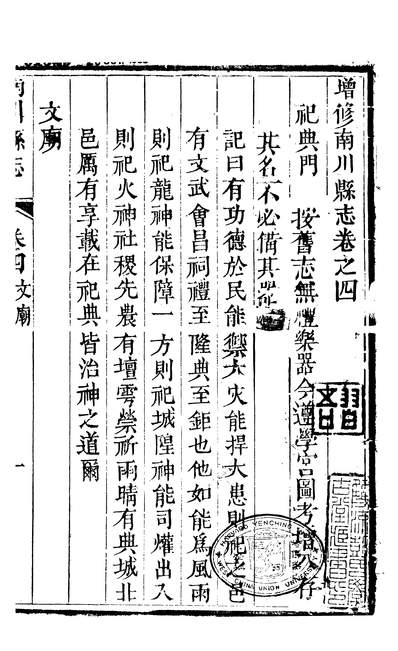 增修南川縣志卷之四
祀典門 按舊志無禮樂器今遵學宮圖考增入存
其名不必備其器
記曰有功德於民能禦大灾能捍大患則祀之邑
有文武會昌祠禮至隆典至鉅也他如能為風雨
則祀龍神能保障一方則祀城隍神能司爟出入
則祀火神社稷先農有壇雩禜祈雨晴有典城北
邑厲有享載在祀典皆治神之道爾
文廟
南川縣志 卷四 文廟 一
YENCHING
WEST CHINA UNION UNIVERSITY